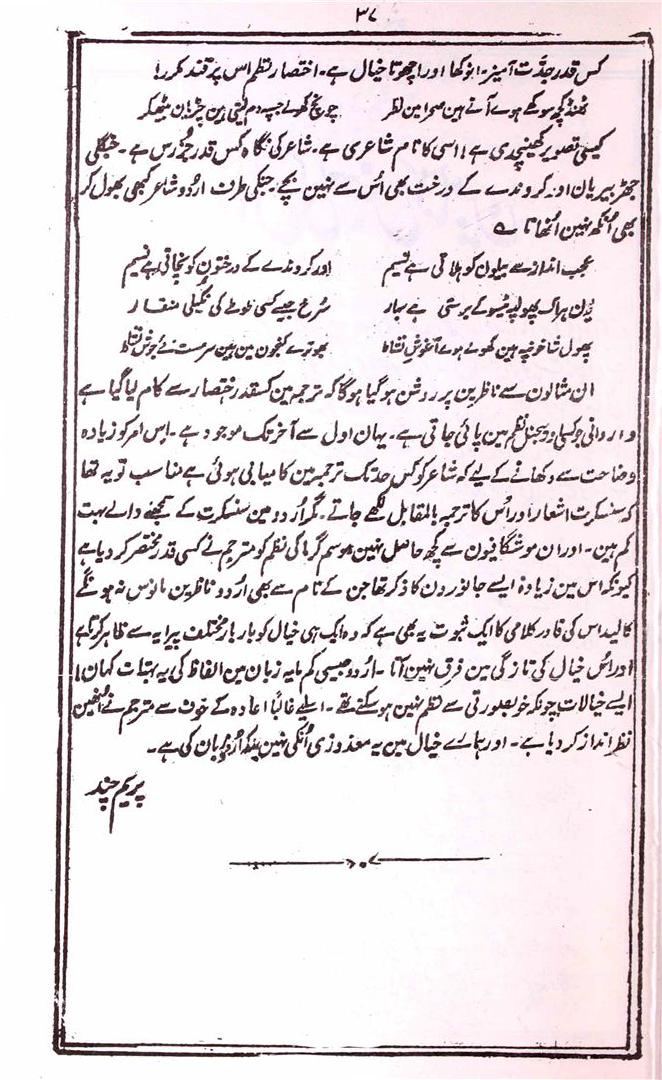 ۳۷
کس قدر جدّت آمیز۔ انوکھا اور اچھوتا خیال ہے۔ اختصار نظم اس پر قند مکرر!
ٹھنڈ کچھ سوکھے ہوے آتے ہین صحرا مین نظر چونچ کھولے جسپہ دم لیتی ہین چڑیان بیٹھکر
کیسی تصویر کھینچدی ہے! اسی کا نام شاعری ہے۔ شاعر کی نگاہ کس قدر جُزرس ہے۔ جنگلی
جھڑبیریان اور کروندے کے درخت بھی اُس سے نہین بچے۔ جنکی طرف اردو شاعر کبھی بھول کر
بھی آنکھ نہین اُٹھاتا ؎
عجب انداز سے بیلون کو ہلاتی ہے نسیم اور کروندے کے درختون کو نچاتی ہے نسیم
یون ہراک پھول پہ ٹیسو کے برستی ہے بہار سُرخ جیسے کسی طوطے کی نکیلی منقار
پھول شاخونپہ ہین کھولے ہوے آغوش نشاط بھونرے کنجون مین ہین سرمست مئے جوش نشاط
ان مثالون سے ناظرین پر روشن ہوگیا ہوگا کہ ترجمہ مین کسقدر اختصار سے کام لیا گیا ہے
اور روانی جو کسی اوریجنل نظم مین پائی جاتی ہے۔ یہان اول سے آخر تک موجود ہے۔ اِس امر کو زیادہ
وضاحت سے دکھانے کے لیے کہ شاعر کو کس حد تک ترجمہ مین کامیابی ہوئی ہے مناسب تو یہ تھا
کہ سنسکرت اشعار اور اُس کا ترجمہ بالمقابل لکھے جاتے۔ مگر اُردو مین سنسکرت کے سمجھنے والے بہت
کم ہین۔ اور ان موشگافیون سے کچھ حاصل نہین موسم گرما کی نظم کو مترجم نے کسی قدر مختصر کر دیا ہے
کیونکہ اس مین زیادہ ایسے جانورون کا ذکر تھا جن کے نام سے بھی اُردو ناظرین مانوس نہ ہونگے
کالیداس کی قادر کلامی کا ایک ثبوت یہ بھی ہے کہ وہ ایک ہی خیال کو بار بار مختلف پیرایہ سے ظاہر کرتا ہے
اور اُس خیال کی تازگی مین فرق نہین آتا۔ اردو جیسی کم مایہ زبان مین الفاظ کی یہ بہتات کہان!
ایسے خیالات چونکہ خوبصورتی سے نظم نہین ہوسکتے تھے۔ اسلیے غالباً اعادہ کے خوف سے مترجم نے اُنھین
نظر انداز کر دیا ہے۔ اور ہمارے خیال مین یہ معذوری اُنکی نہین بلکہ اُردو زبان کی ہے۔
پریم چند